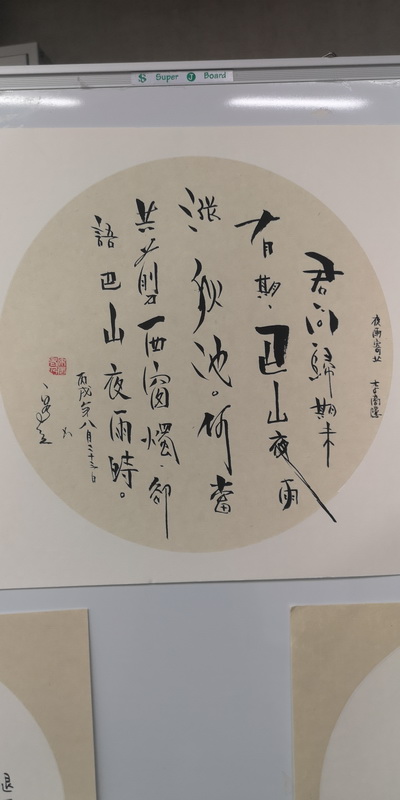 S Super J Board
夜雨寄北 李商隱
君問歸期未
有期、巴山夜雨
漲秋池。何當
共剪西窗燭、卻
語巴山夜雨時。
丙戌年八月二十三日
退